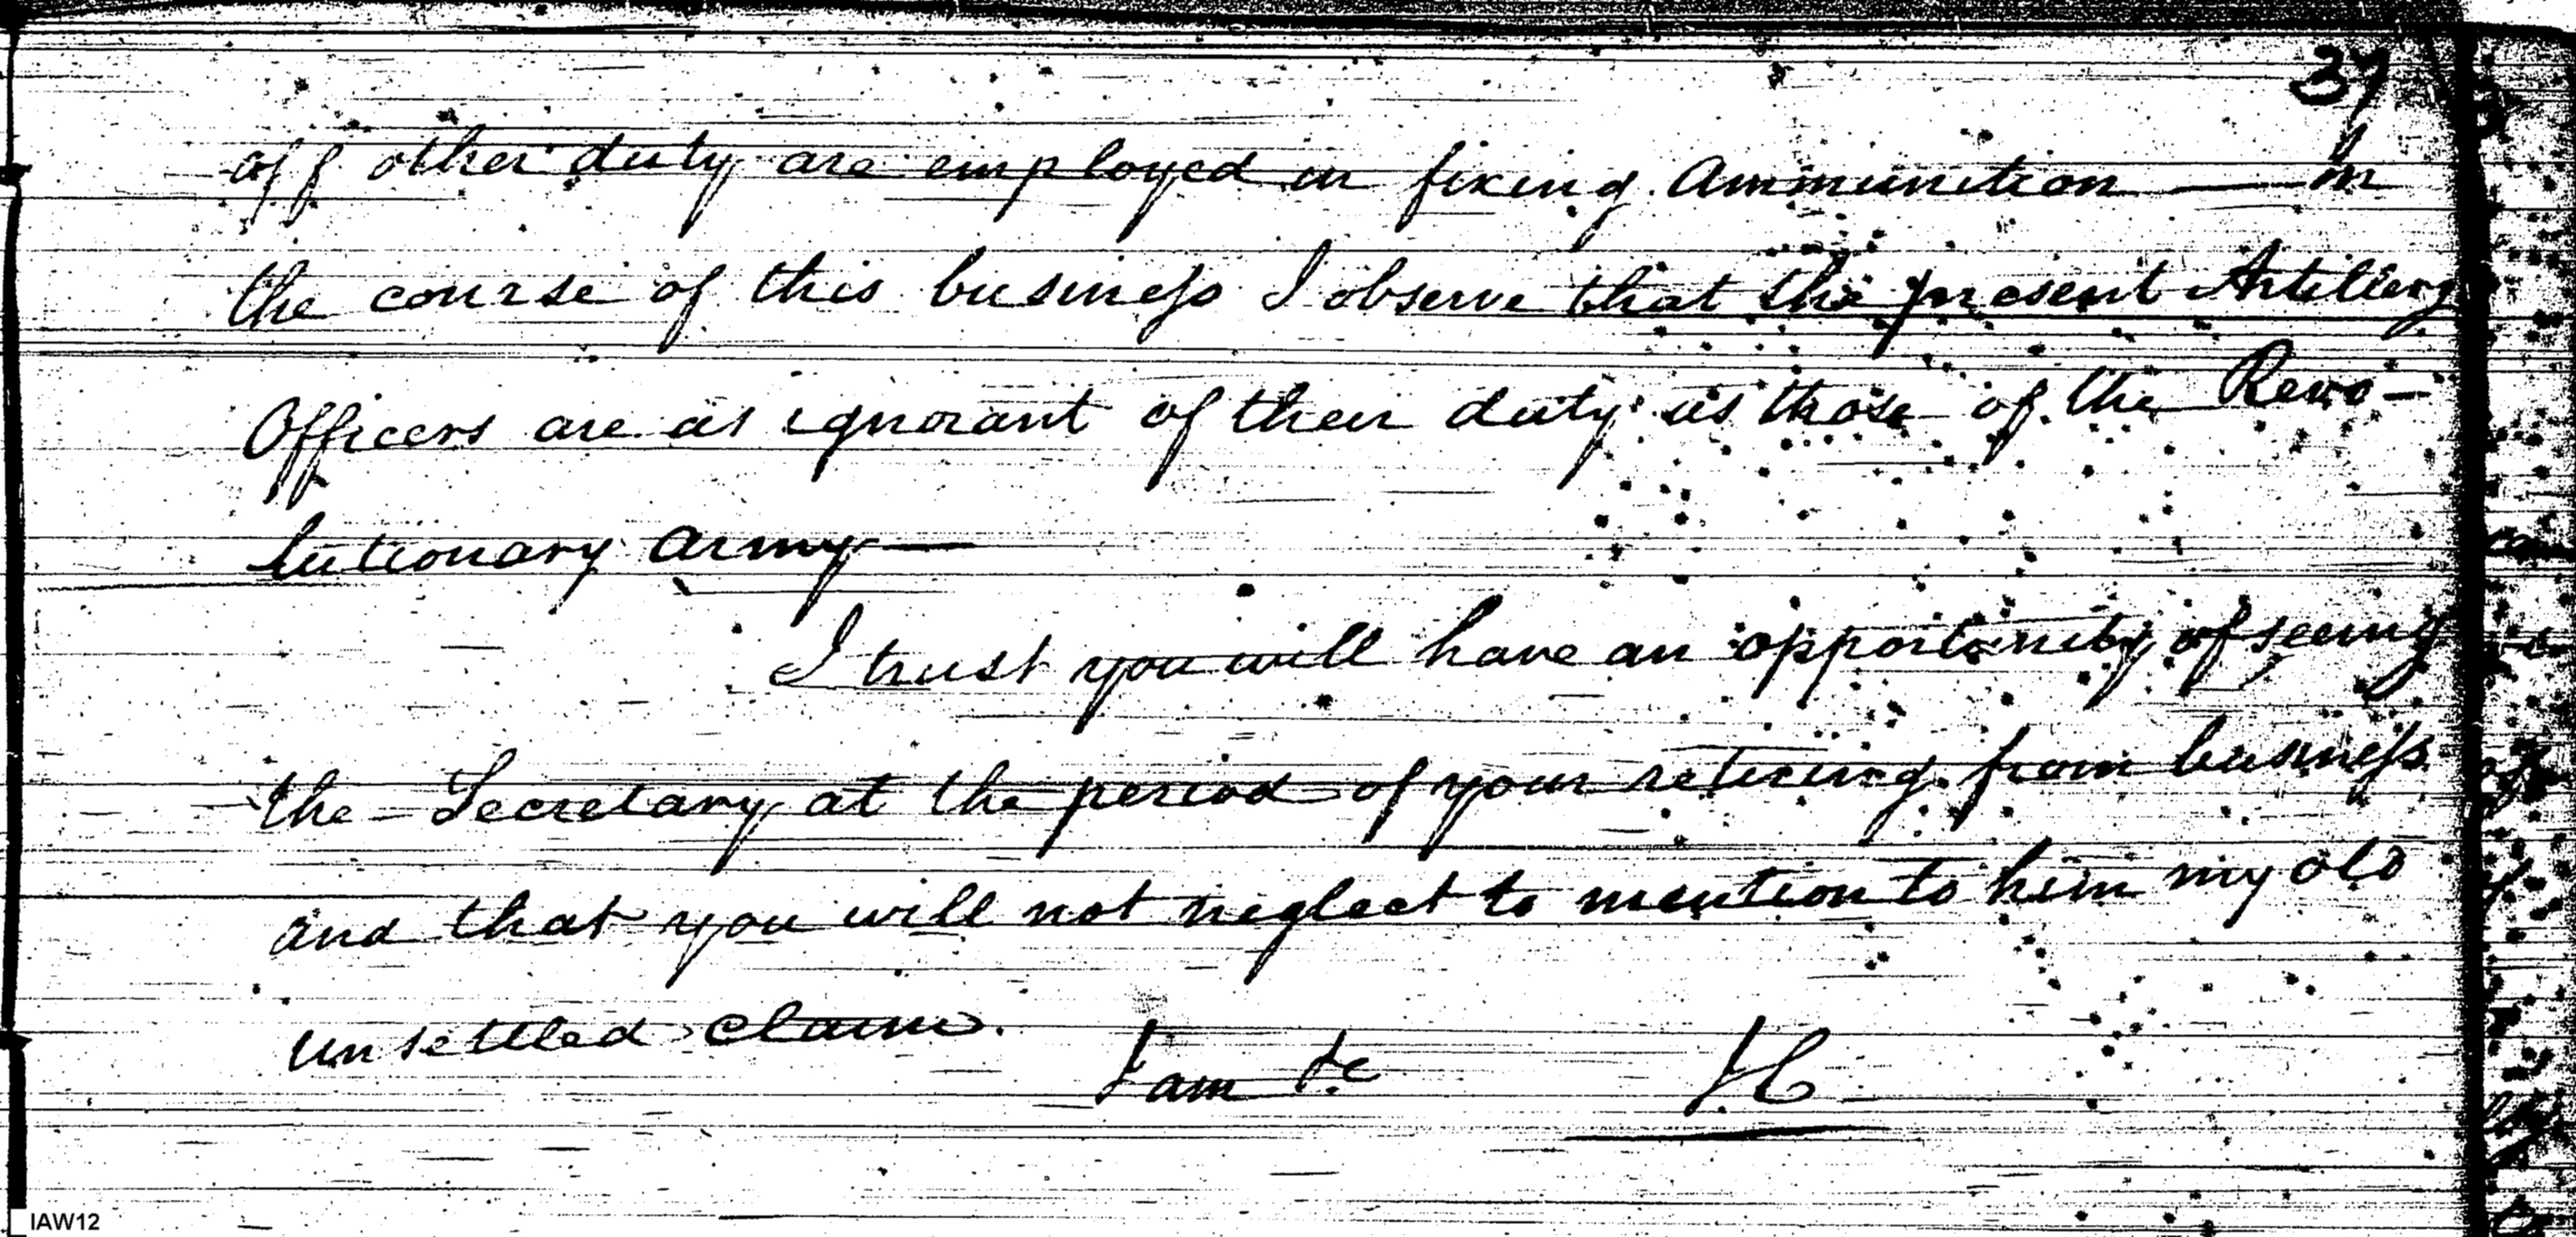 37
off other duty are employed in fixing Ammunition — In
the course of this business I observe that the present Artillery
Officers are as ignorant of their duty as those of the Revo-
lutionary Army —
I trust you will have an opportunity of seeing
the Secretary at the period of your retiring from business
and that you will not neglect to mention to him my old
unsettled claim.
I am &c
IAW12